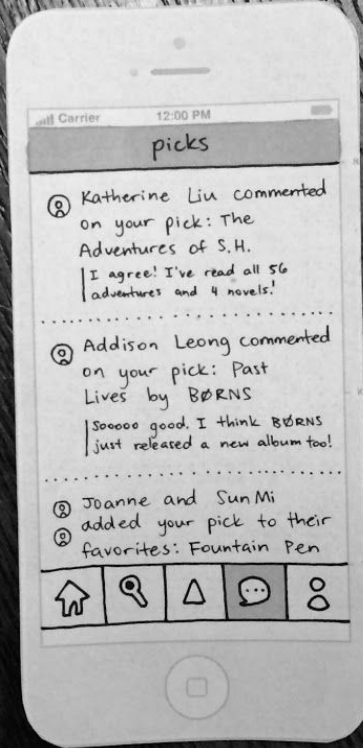 Carrier 12:00 PM
picks
Katherine Liu commented
on your pick: The
Adventures of S.H.
I agree! I've read all 56
adventures and 4 novels!
Addison Leong commented
on your pick: Past
Lives by BØRNS
Sooooo good. I think BØRNS
just released a new album too!
Joanne and SunMi
added your pick to their
favorites: Fountain Pen